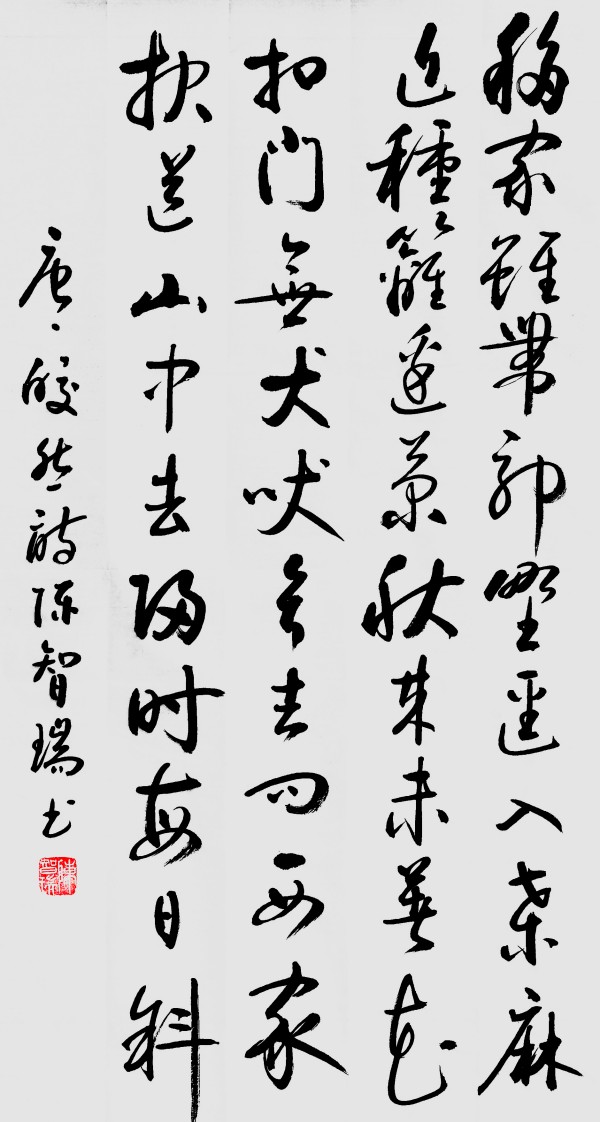 移家雖帶郭野徑入桑麻
近種籬邊菊秋來未著花
扣門無犬吠欲去問西家
报道山中去歸时每日斜
唐、皎然詩陳智瑞书
陳智瑞